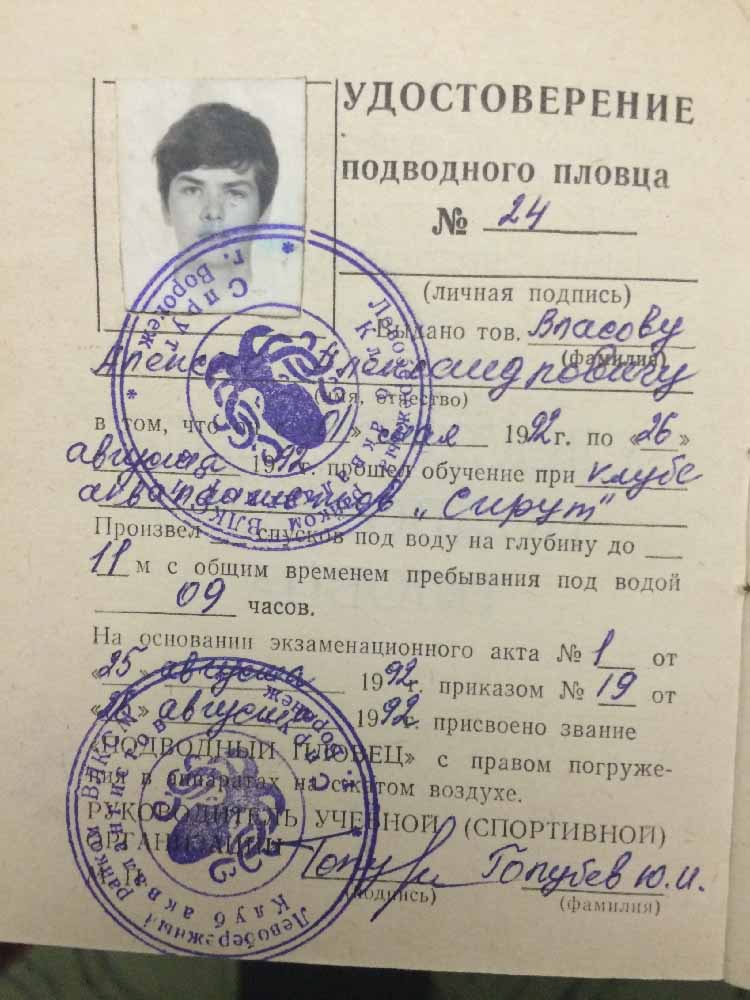 УДОСТОВЕРЕНИЕ
ПОДВОДНОГО ПЛОВЦА
№ 24
(личная подпись)
Выдано тов. Власову
(фамилия)
Александровичу
(имя, отчество)
в том, что с «01» мая 1992г. по «26»
августа 1992г. прошел обучение при клубе
аквалангистов „Спрут"
Произвел спусков под воду на глубину до
11 м с общим временем пребывания под водой
09 часов.
На основании экзаменационного акта № 1 от
«25» августа 1992г. приказом № 19 от
«26» августа 1992г. присвоено звание
«ПОДВОДНЫЙ ПЛОВЕЦ» с правом погруже-
ния в аппаратах на сжатом воздухе.
РУКОВОДИТЕЛЬ УЧЕБНОЙ (СПОРТИВНОЙ)
ОРГАНИЗАЦИИ
Голубев Ю.И.
(подпись)
(фамилия)
Левобережный райком ВЛКСМ г. Воронеж
Клуб аквалангистов Спрут
Левобережный райком ВЛКСМ г. Воронеж
Клуб аквалангистов Спрут